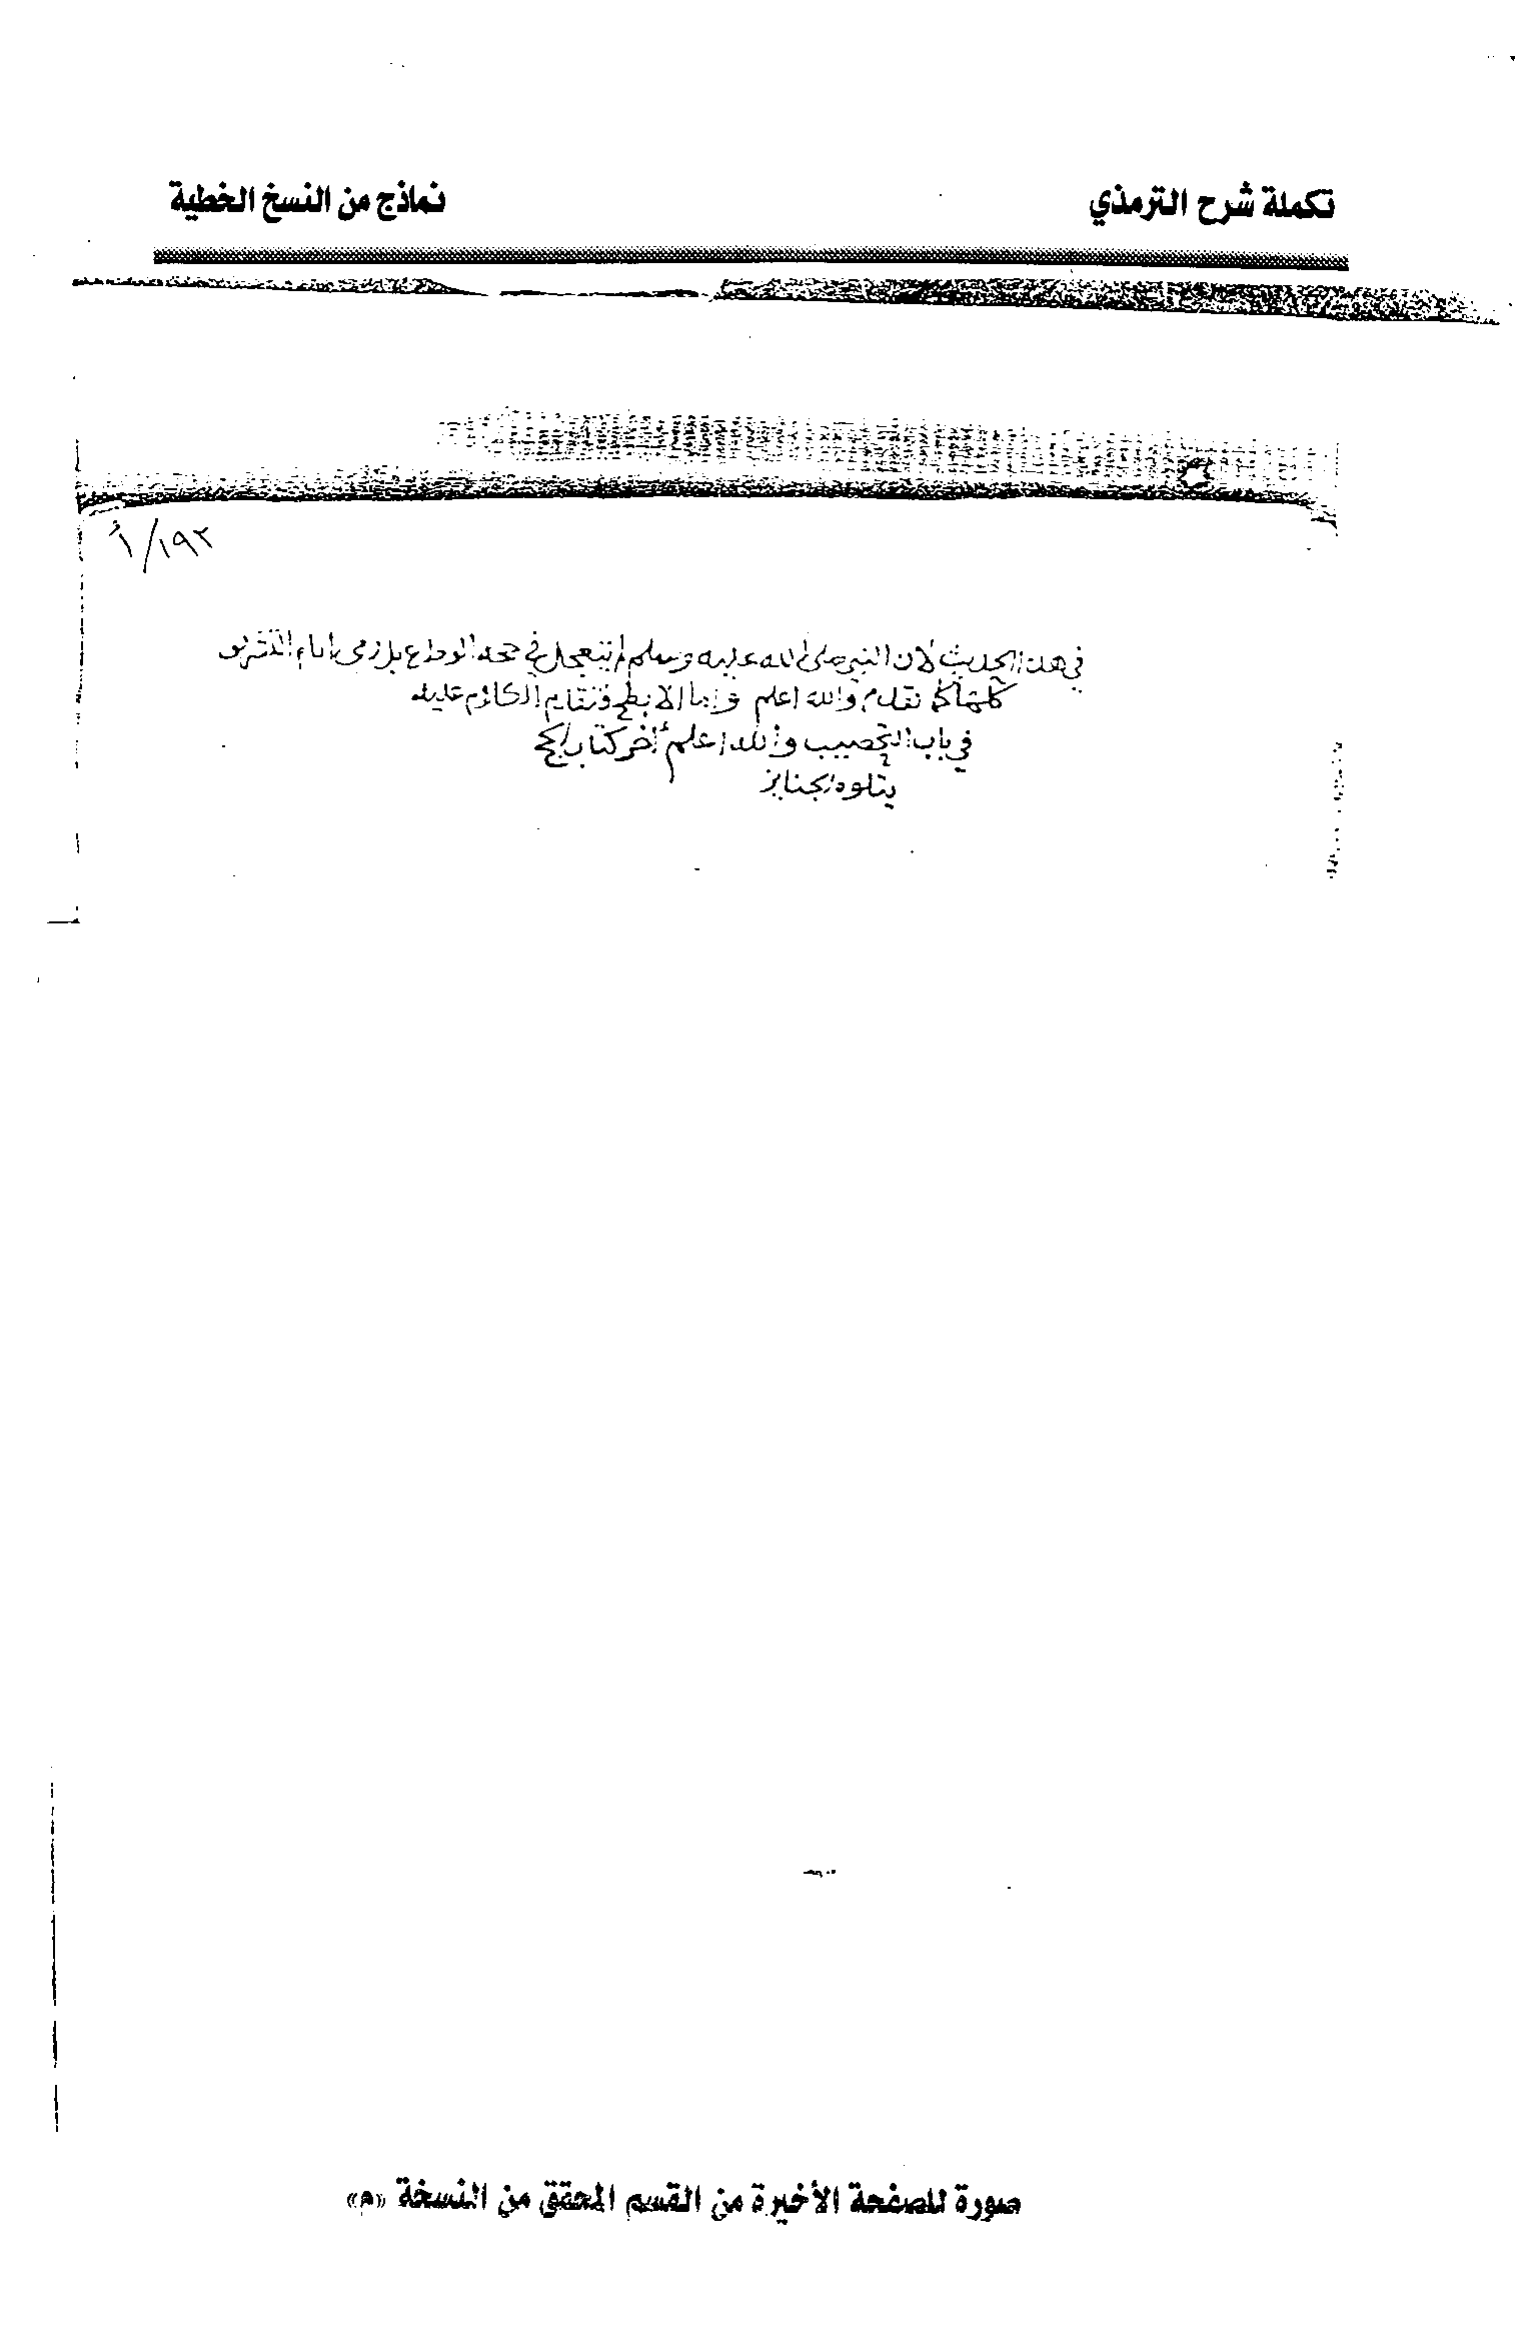 تكملة شرح الترمذي
نماذج من النسخ الخطية
١٩٢/أ
في هذا الحديث لان النبي صلى الله عليه وسلم لم يتعجل في حجة الوداع بل رمى ايام التشريق
كلها كما تقدم والله اعلم واما الابطح فتقدم الكلام عليه
في باب التحصيب والله اعلم آخر كتاب الحج
يتلوه الجنايز
صورة للصفحة الأخيرة من القسم المحقق من النسخة «م»